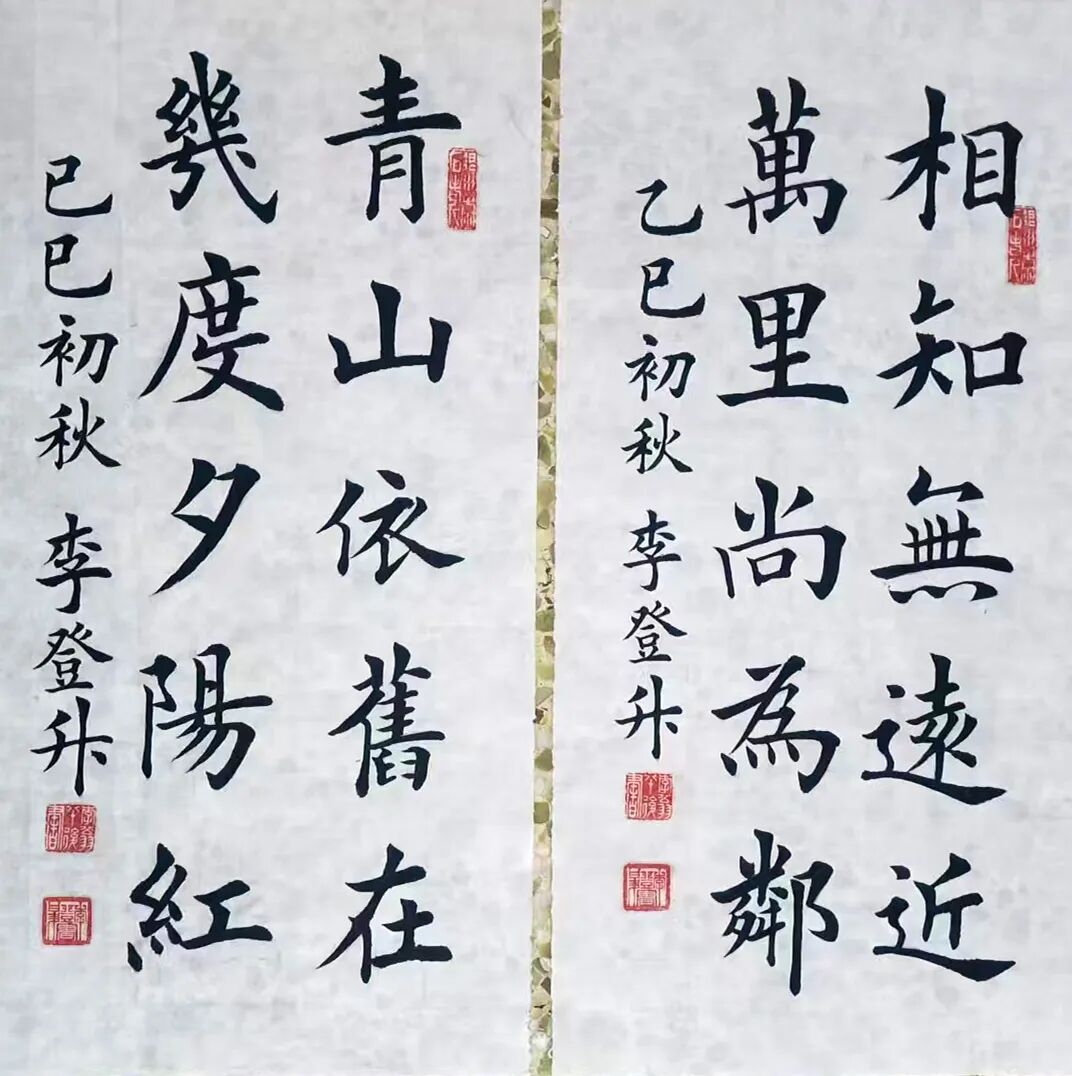 相知無遠近
萬里尚為鄰
乙巳初秋 李登升
青山依舊在
幾度夕陽紅
已巳初秋 李登升